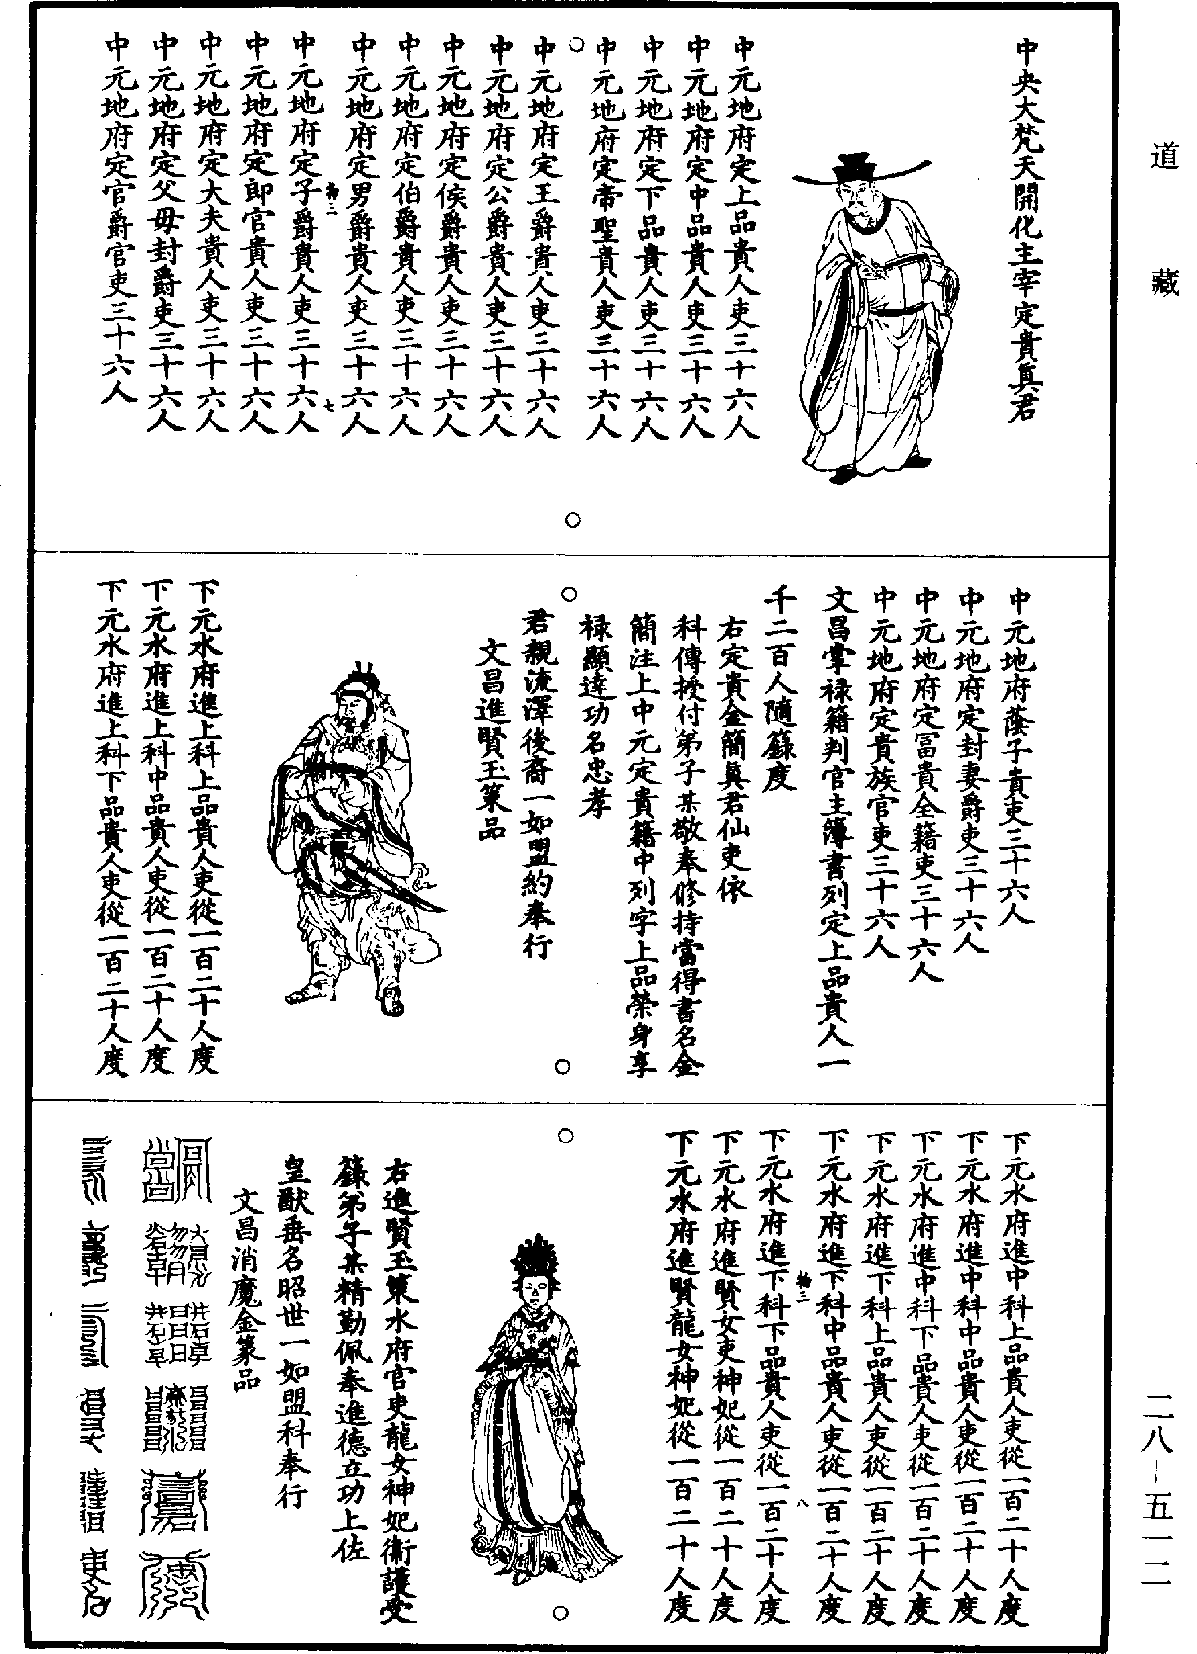 道藏
中央大梵天開化主宰定貴真君
中元地府定上品貴人吏三十六人
中元地府定中品貴人吏三十六人
中元地府定下品貴人吏三十六人
中元地府定帝聖貴人吏三十六人
中元地府定王爵貴人吏三十六人
中元地府定公爵貴人吏三十六人
中元地府定侯爵貴人吏三十六人
中元地府定伯爵貴人吏三十六人
中元地府定男爵貴人吏三十六人
中元地府定子爵貴人吏三十六人
中元地府定郎官貴人吏三十六人
中元地府定大夫貴人吏三十六人
中元地府定父母封爵吏三十六人
中元地府定官爵官吏三十六人
中元地府蔭子貴吏三十六人
中元地府定封妻爵吏三十六人
中元地府定冨貴全籍吏三十六人
中元地府定貴族官吏三十六人
文昌掌祿籍判官主簿書列定上品貴人一
千二百人隨籙度
右定貴金簡真君仙吏依
科傳授付弟子某敬奉修持當得書名金
簡注上中元定貴籍中列字上品榮身享
祿顯達功名忠孝
君親流澤後裔一如盟約奉行
文昌進賢玉策品
下元水府進上科上品貴人吏從一百二十人度
下元水府進上科中品貴人吏從一百二十人度
下元水府進上科下品貴人吏從一百二十人度
下元水府進中科上品貴人吏從一百二十人度
下元水府進中科中品貴人吏從一百二十人度
下元水府進中科下品貴人吏從一百二十人度
下元水府進下科上品貴人吏從一百二十人度
下元水府進下科中品貴人吏從一百二十人度
八
下元水府進下科下品貴人吏從一百二十人度
下元水府進賢女吏神妃從一百二十人度
下元水府進賢龍女神妃從一百二十人度
右進賢玉策水府官吏龍女神妃衛護受
籙弟子某精勤佩奉進德立功上佐
皇猷垂名昭世一如盟科奉行
文昌消魔金篆品
二八-五一二